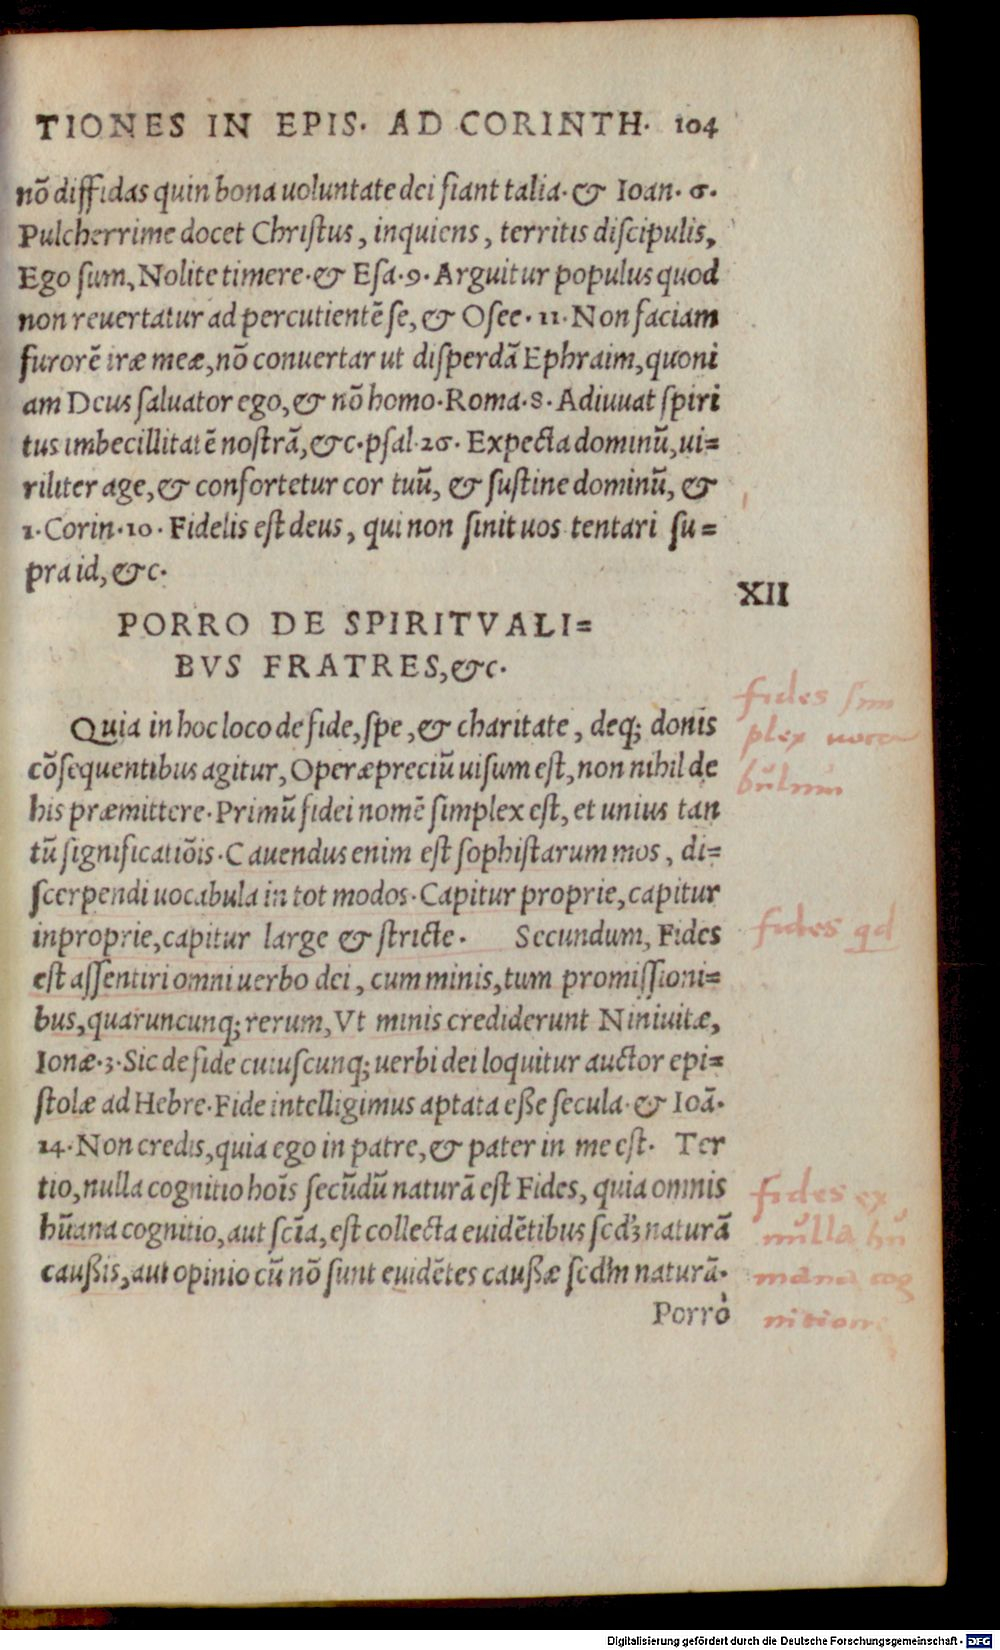 TIONES IN EPIS. AD CORINTH. 104
nō diffidas quin bona uoluntate dei fiant talia. & Ioan. 6.
Pulcherrime docet Chriſtus, inquiens, territis diſcipulis,
Ego ſum, Nolite timere. & Eſa. 9. Arguitur populus quod
non reuertatur ad percutientē ſe, & Oſee. 11. Non faciam
furorē iræ meæ, nō conuertar ut diſperdā Ephraim, quoni
am Deus ſaluator ego, & nō homo. Roma. 8. Adiuuat ſpiri
tus imbecillitatē noſtrā, &c. pſal. 26. Expecta dominū, ui=
riliter age, & confortetur cor tuū, & ſuſtine dominū, &
1. Corin. 10. Fidelis eſt deus, qui non ſinit uos tentari ſu=
pra id, &c.
XII
PORRO DE SPIRITVALI=
BVS FRATRES, &c.
Quia in hoc loco de fide, ſpe, & charitate, deq; donis
cōſequentibus agitur, Operæpreciū uiſum eſt, non nihil de
his præmittere. Primū fidei nomē ſimplex eſt, et unius tan
tū ſignificatiōis. Cauendus enim eſt ſophiſtarum mos, di=
ſcerpendi uocabula in tot modos. Capitur proprie, capitur
inproprie, capitur large & ſtricte. Secundum, Fides
eſt aſſentiri omni uerbo dei, cum minis, tum promiſſioni=
bus, quaruncunq; rerum, Vt minis crediderunt Niniuitæ,
Ionæ. 3. Sic de fide cuiuſcunq; uerbi dei loquitur auctor epi=
ſtolæ ad Hebre. Fide intelligimus aptata eße ſecula. & Ioā.
14. Non credis, quia ego in patre, & pater in me eſt. Ter
tio, nulla cognitio hoīs ſecūdū naturā eſt Fides, quia omnis
hūana cognitio, aut ſcīa, eſt collecta euidētibus ſcdꝫ naturā
caußis, aut opinio cū nō ſunt euidētes caußæ ſcdm naturā.
Porrò
fides ſim
plex uoca
būlum
fides qd
fides ex
nulla hū
mana cog
nitione
Digitalisierung gefördert durch die Deutsche Forschungsgemeinschaft - DFG